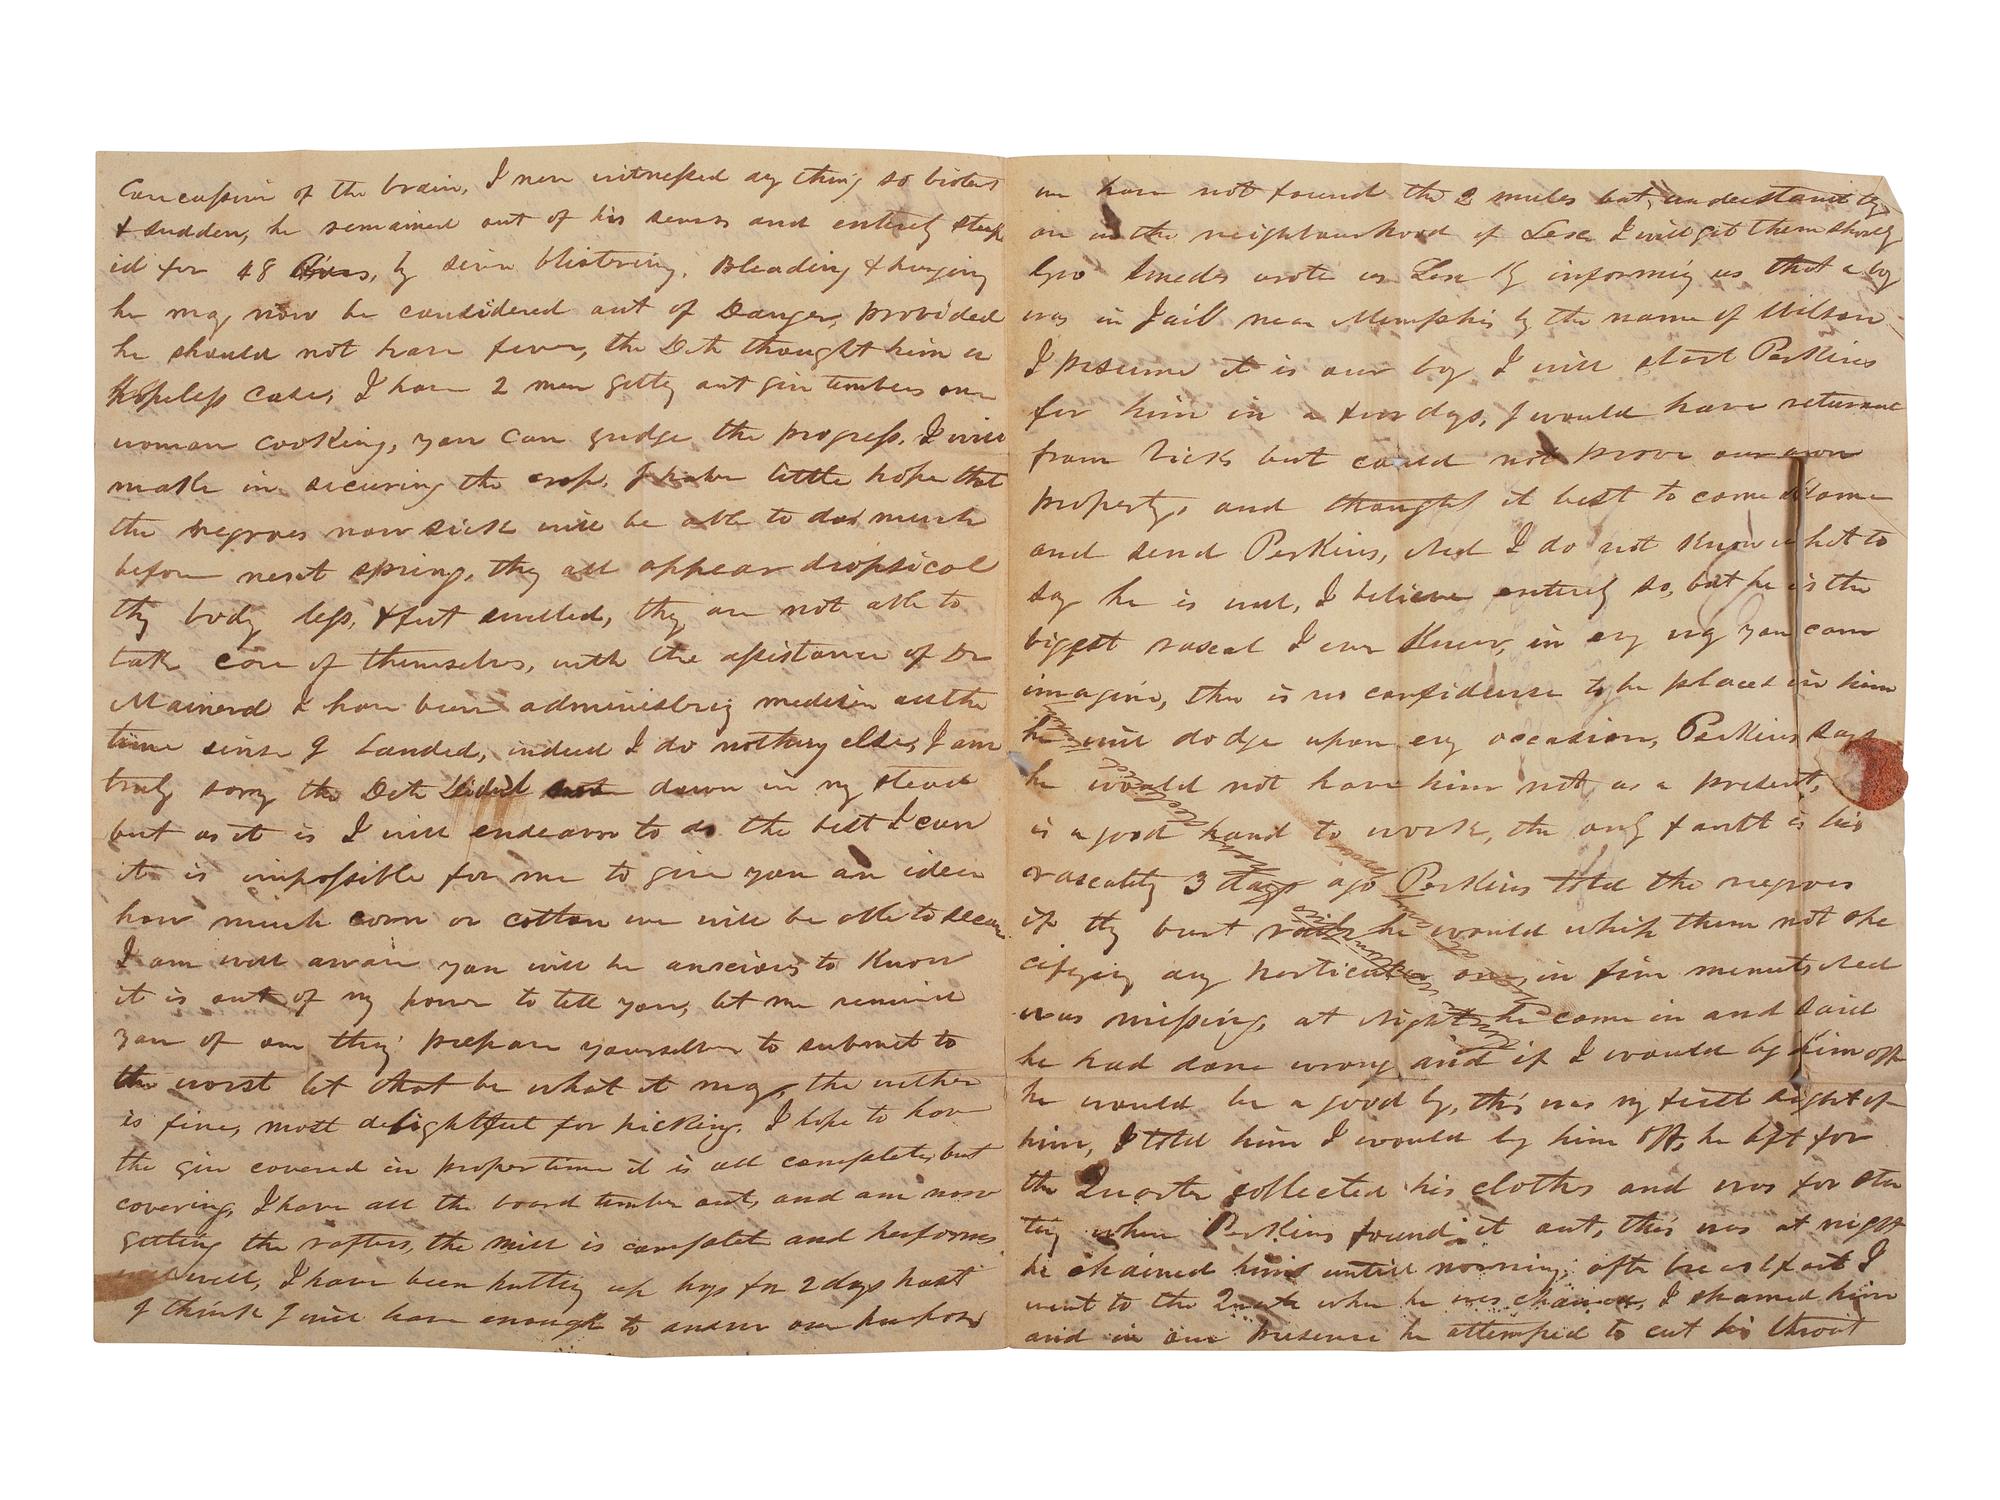 Concussion of the brain, I never witnessed any thing so violent
& sudden, he remained out of his senses and entirely stup
id for 48 hours, by seven blistering, Bleading & purging
he may now be considered out of Danger, provided
he should not have fever, the Dctr thought him a
Hopeless case, I have 2 men getting out gin timbers one
woman cooking, you can gudge the progress. I will
make in securing the crop. I have little hope that
the negroes now sick will be able to do much
before next spring, they all appear dropsical
thy body legs, & feet swelled, they are not able to
take care of themselves, with the assistance of Dr
Mainard I have been administring medicin all the
time sinse I Landed, indeed I do nothing else, I am
truly sorry the Dctr did not down in my stead
but as it is I will endeavor to do the best I can
it is impossible for me to give you an ideea
how much corn or cotton we will be able to secure
I am well aware you will be anxious to Know
it is out of my power to tell you, let me remind
you of one thing prepare yourselves to submit to
the worst let that be what it may, the wether
is fine, most delightful for picking. I hope to have
the gin covered in proper time it is all complete, but
covering, I have all the board timber out, and am now
getting the rafters, the mill is complete and performs
well, I have been putting up hogs for 2 days past
I think I will have enough to answer our purposes
we have not found the 2 mules but, understand they
are in the neighbourhood of Lex. I will get them shortly
Geo Smedes wrote us Lex Ky informing us that a boy
was in Jail near Memphis by the name of Wilson
I presume it is our boy I will start Perkins
for him in a few days, I would have returned
from Vicks but could not prove our own
property, and thought it best to come Home
and send Perkins, Ned I do not Know what to
say he is well, I believe entirely so, but he is the
biggest rascal I ever Knew, in evy way you can
imagine, ther is no confidense to be placed in him
he will dodge upon evy occasion, Perkins says
he would not have him not as a present,
is a good hand to work, the only fault is his
rascality 3 days ago Perkins told the negroes
if thy burt rails he would whip them not spe
cifying any perticuler one in five menuts Ned
was missing, at Night he come in and said
he had done wrong and if I would by him off
he would be a good by, this was my first sight of
him, I told him I would by him off, he left for
the Quarter collected his cloths and was for star
ting when Perkins found it out, this was at night
he chained him untill morning, after breakfast I
went to the Quater when he was chained, I shamed him
and in our presense he attemped to cut his throat